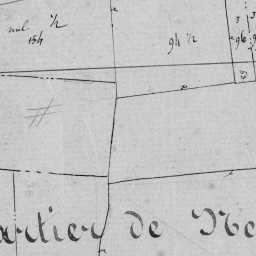 nul 1/2
154
94 1/2
3 3
96 9
artier de Ne